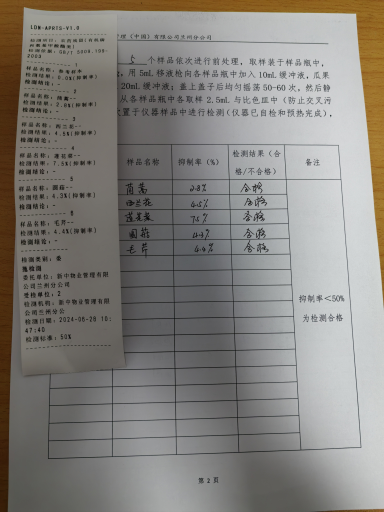 LDM-APRTS-V1.0
2003
1
检测结果: 0.0%(抑制率)
检测结论: -
2
样品名称: 茼蒿--
检测结果: 2.8%(抑制率)
检测结论: -
3
样品名称: 西兰花--
检测结果: 4.5%(抑制率)
检测结论: -
4
样品名称: 莲花菜--
检测结果: 7.5%(抑制率)
检测结论: -
5
样品名称: 圆茄--
检测结果: 4.3%(抑制率)
检测结论: -
6
样品名称: 毛芹--
检测结果: 4.4%(抑制率)
检测结论: -
检测类别: 委
托检测
委托单位: 新中物业管理有限
公司兰州分公司
受检单位: 2
检测机构: 新中物业管理有限
公司兰州分公
检测日期: 2024-06-28 10
:47:40
检测标准: 50%
管理(中国)有限公司兰州分公司
5 个样品依次进行前处理,取样装于样品瓶中,
,用 5mL 移液枪向各样品瓶中加入 10mL 缓冲液,瓜果
20mL 缓冲液;盖上盖子后均匀摇荡 50-60 次,然后静
从各样品瓶中各取样 2.5mL 与比色皿中(防止交叉污
置于仪器样品中进行检测(仪器已自检和预热完成)。
样品名称 抑制率(%) 检测结果(合格/不合格) 备注
茼蒿 2.8% 合格
西兰花 4.5% 合格
莲花菜 7.5% 合格
圆茄 4.3% 合格
毛芹 4.4% 合格
抑制率<50%
为检测合格
第 2 页